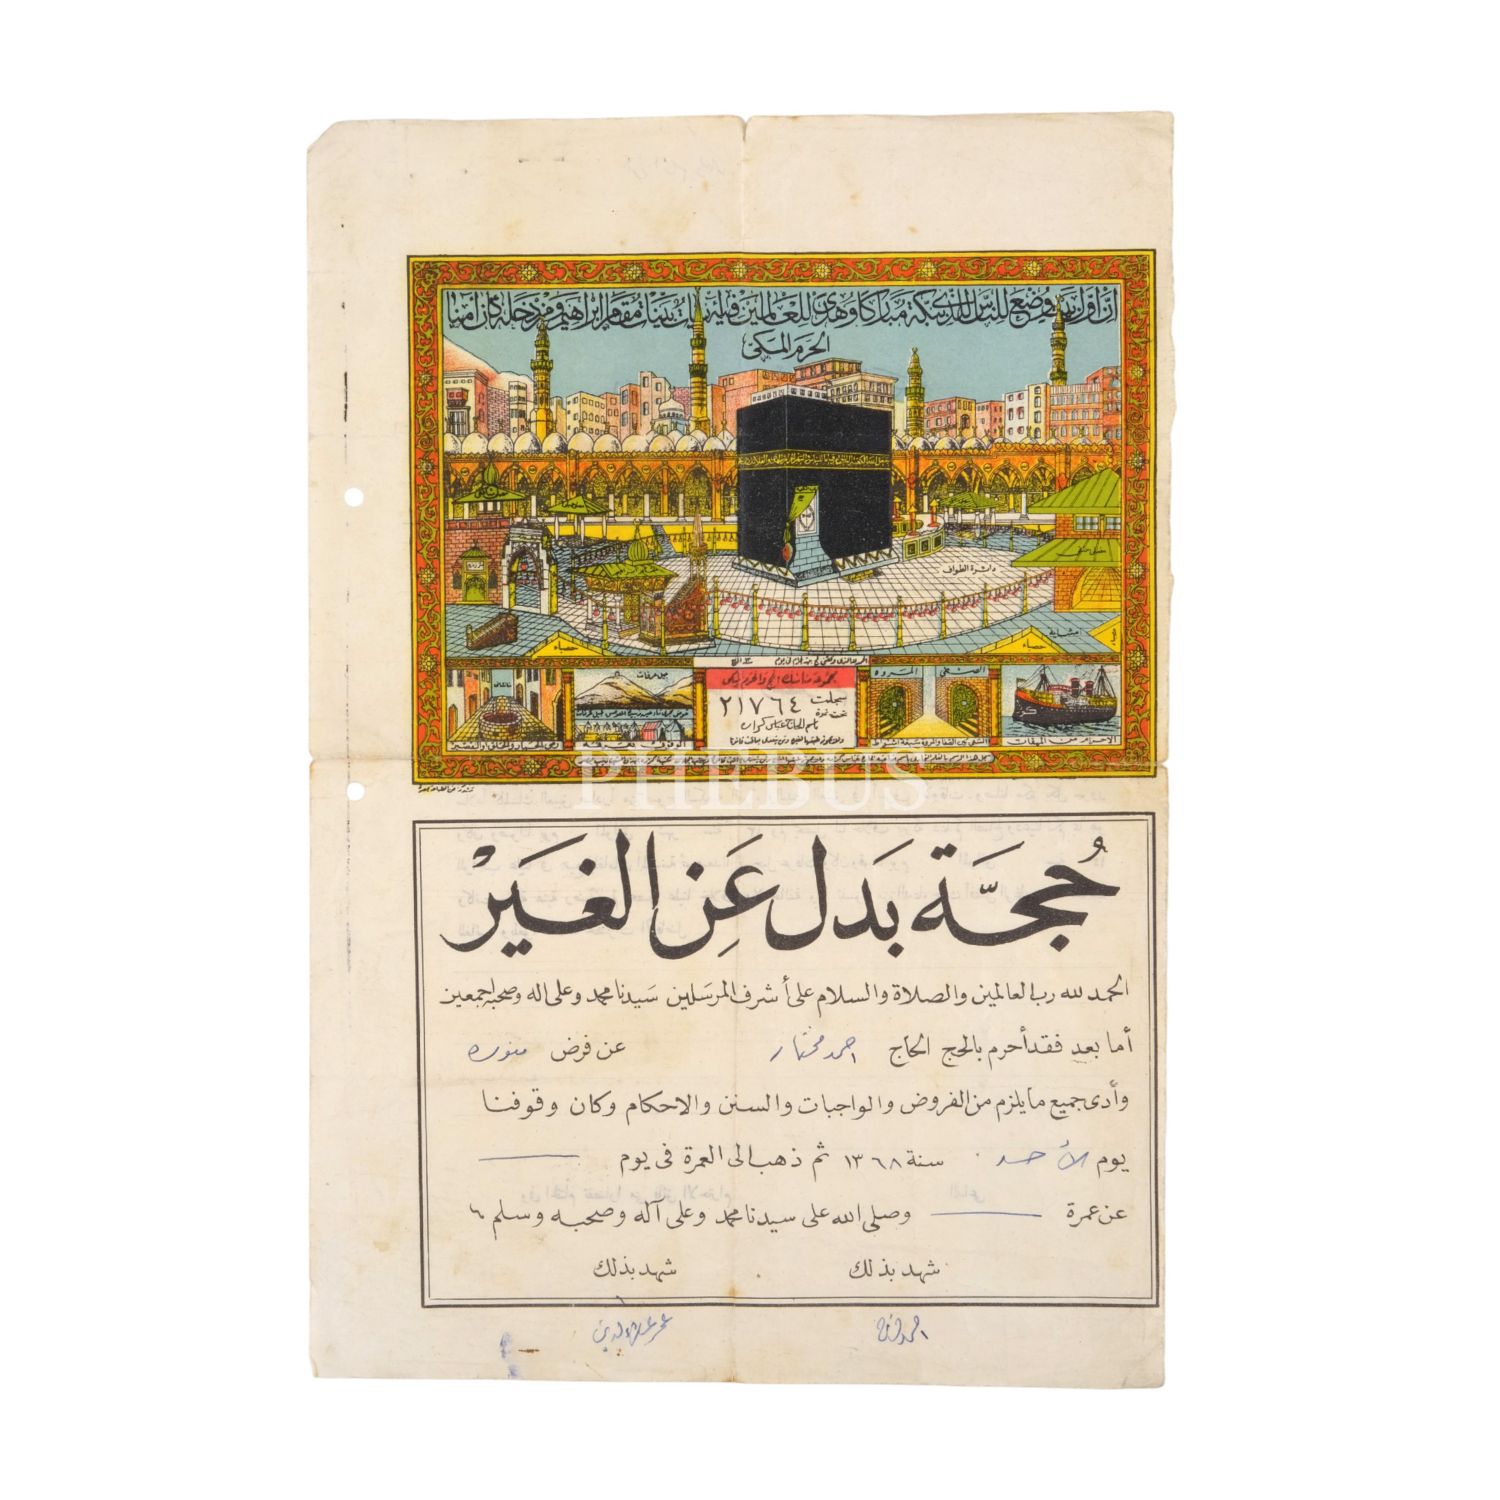 ان اول بيت وضع للناس للذي ببكة مباركا وهدى للعالمين فيه آيات بينات مقام ابراهيم ومن دخله كان آمنا
الحرم المكي
دائرة الطواف
مصلى حنفي
مشاية
حصباء
حصباء
جبل عرفات
مجموعة مناسك الحج والحرم المكي
سجلت
تحت نمرة
٢١٧٦٤
المروه
الصفى
الاحرام من الميقات
السعى بين الصفا والمروى سبعة اشواط
الوقوف بعرفه
PHEBUS
حُجَّة بَدَل عَن الغَيْر
الحمد لله رب العالمين والصلاة والسلام على أشرف المرسلين سيدنا محمد وعلى اله وصحبه اجمعين
أما بعد فقد أحرم بالحج الحاج احمد مختار عن فرض منوره
وأدى جميع ما يلزم من الفروض والواجبات والسنن والاحكام وكان وقوفنا
يوم الأحد سنة ١٣٦٨ ثم ذهب الى العمرة فى يوم
عن عمرة وصلى الله على سيدنا محمد وعلى آله وصحبه وسلم
شهد بذلك شهد بذلك